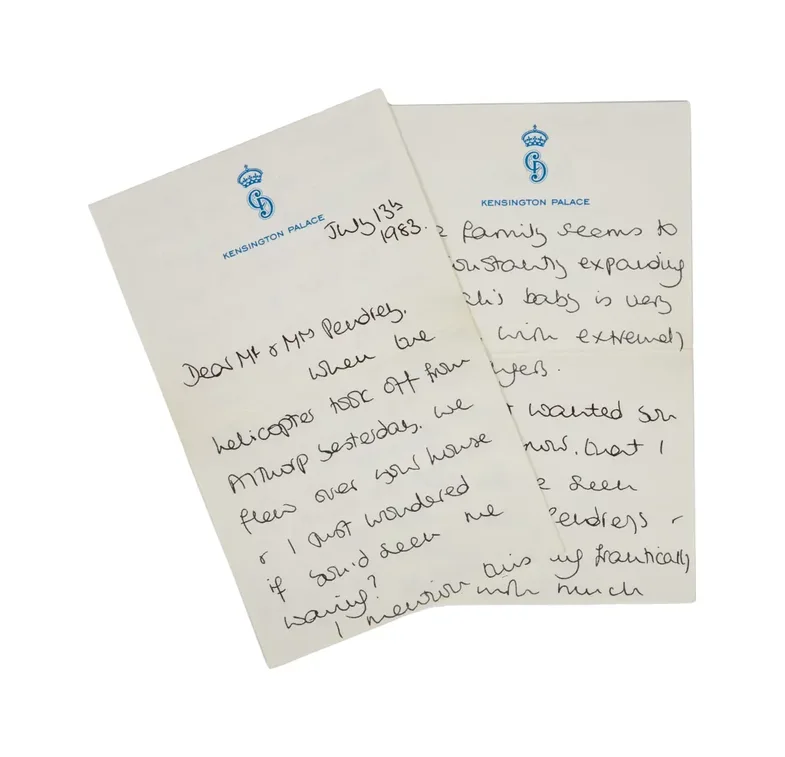 KENSINGTON PALACE
July 13th
1983.
Dear Mr & Mrs Pendrey,
When the
helicopter took off from
Althorp yesterday, we
flew over your house
& I just wondered
if you'd seen me
waving?
I mention this
KENSINGTON PALACE
family seems to
onstantly expanding
baby is very
, with extremely
wanted you
now, that I
seen
endreys -
frantically
with much